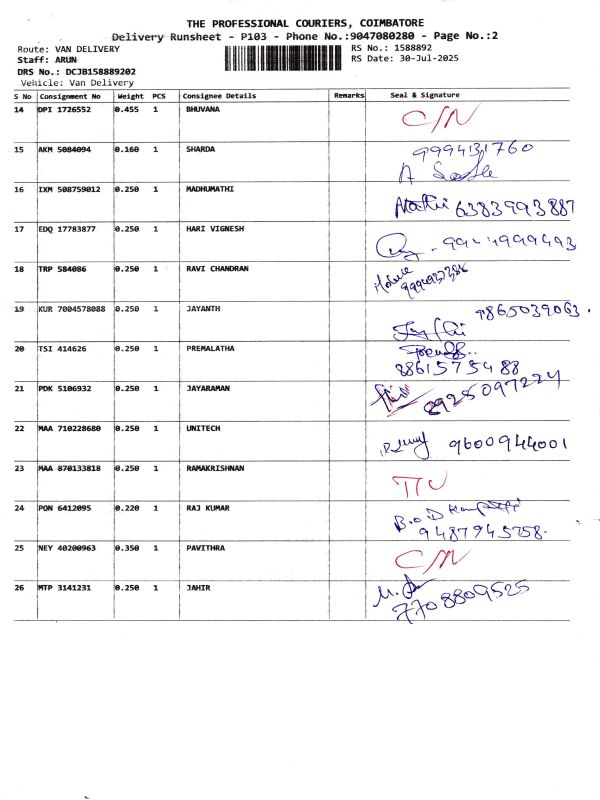 THE PROFESSIONAL COURIERS, COIMBATORE
Delivery Runsheet - P103 - Phone No.:9047080280 - Page No.:2
Route: VAN DELIVERY
RS No.: 1588892
Staff: ARUN
RS Date: 30-Jul-2025
DRS No.: DCJB158889202
Vehicle: Van Delivery
S No Consignment No Weight PCS Consignee Details Remarks Seal & Signature
14 DPI 1726552 0.455 1 BHUVANA C/N
15 AKM 5084094 0.160 1 SHARDA 9994131760
16 IXM 508759012 0.250 1 MADHUMATHI 6383993887
17 EDQ 17783877 0.250 1 HARI VIGNESH
18 TRP 584086 0.250 1 RAVI CHANDRAN
19 KUR 7004578088 0.250 1 JAYANTH 9865039063.
20 TSI 414626 0.250 1 PREMALATHA
8861573488
21 PDK 5106932 0.250 1 JAYARAMAN
22 MAA 710228680 0.250 1 UNITECH 9600944001
23 MAA 870133818 0.250 1 RAMAKRISHNAN
24 PON 6412095 0.220 1 RAJ KUMAR
9487945758.
25 NEY 40200963 0.350 1 PAVITHRA C/N
26 MTP 3141231 0.250 1 JAHIR
7708809525